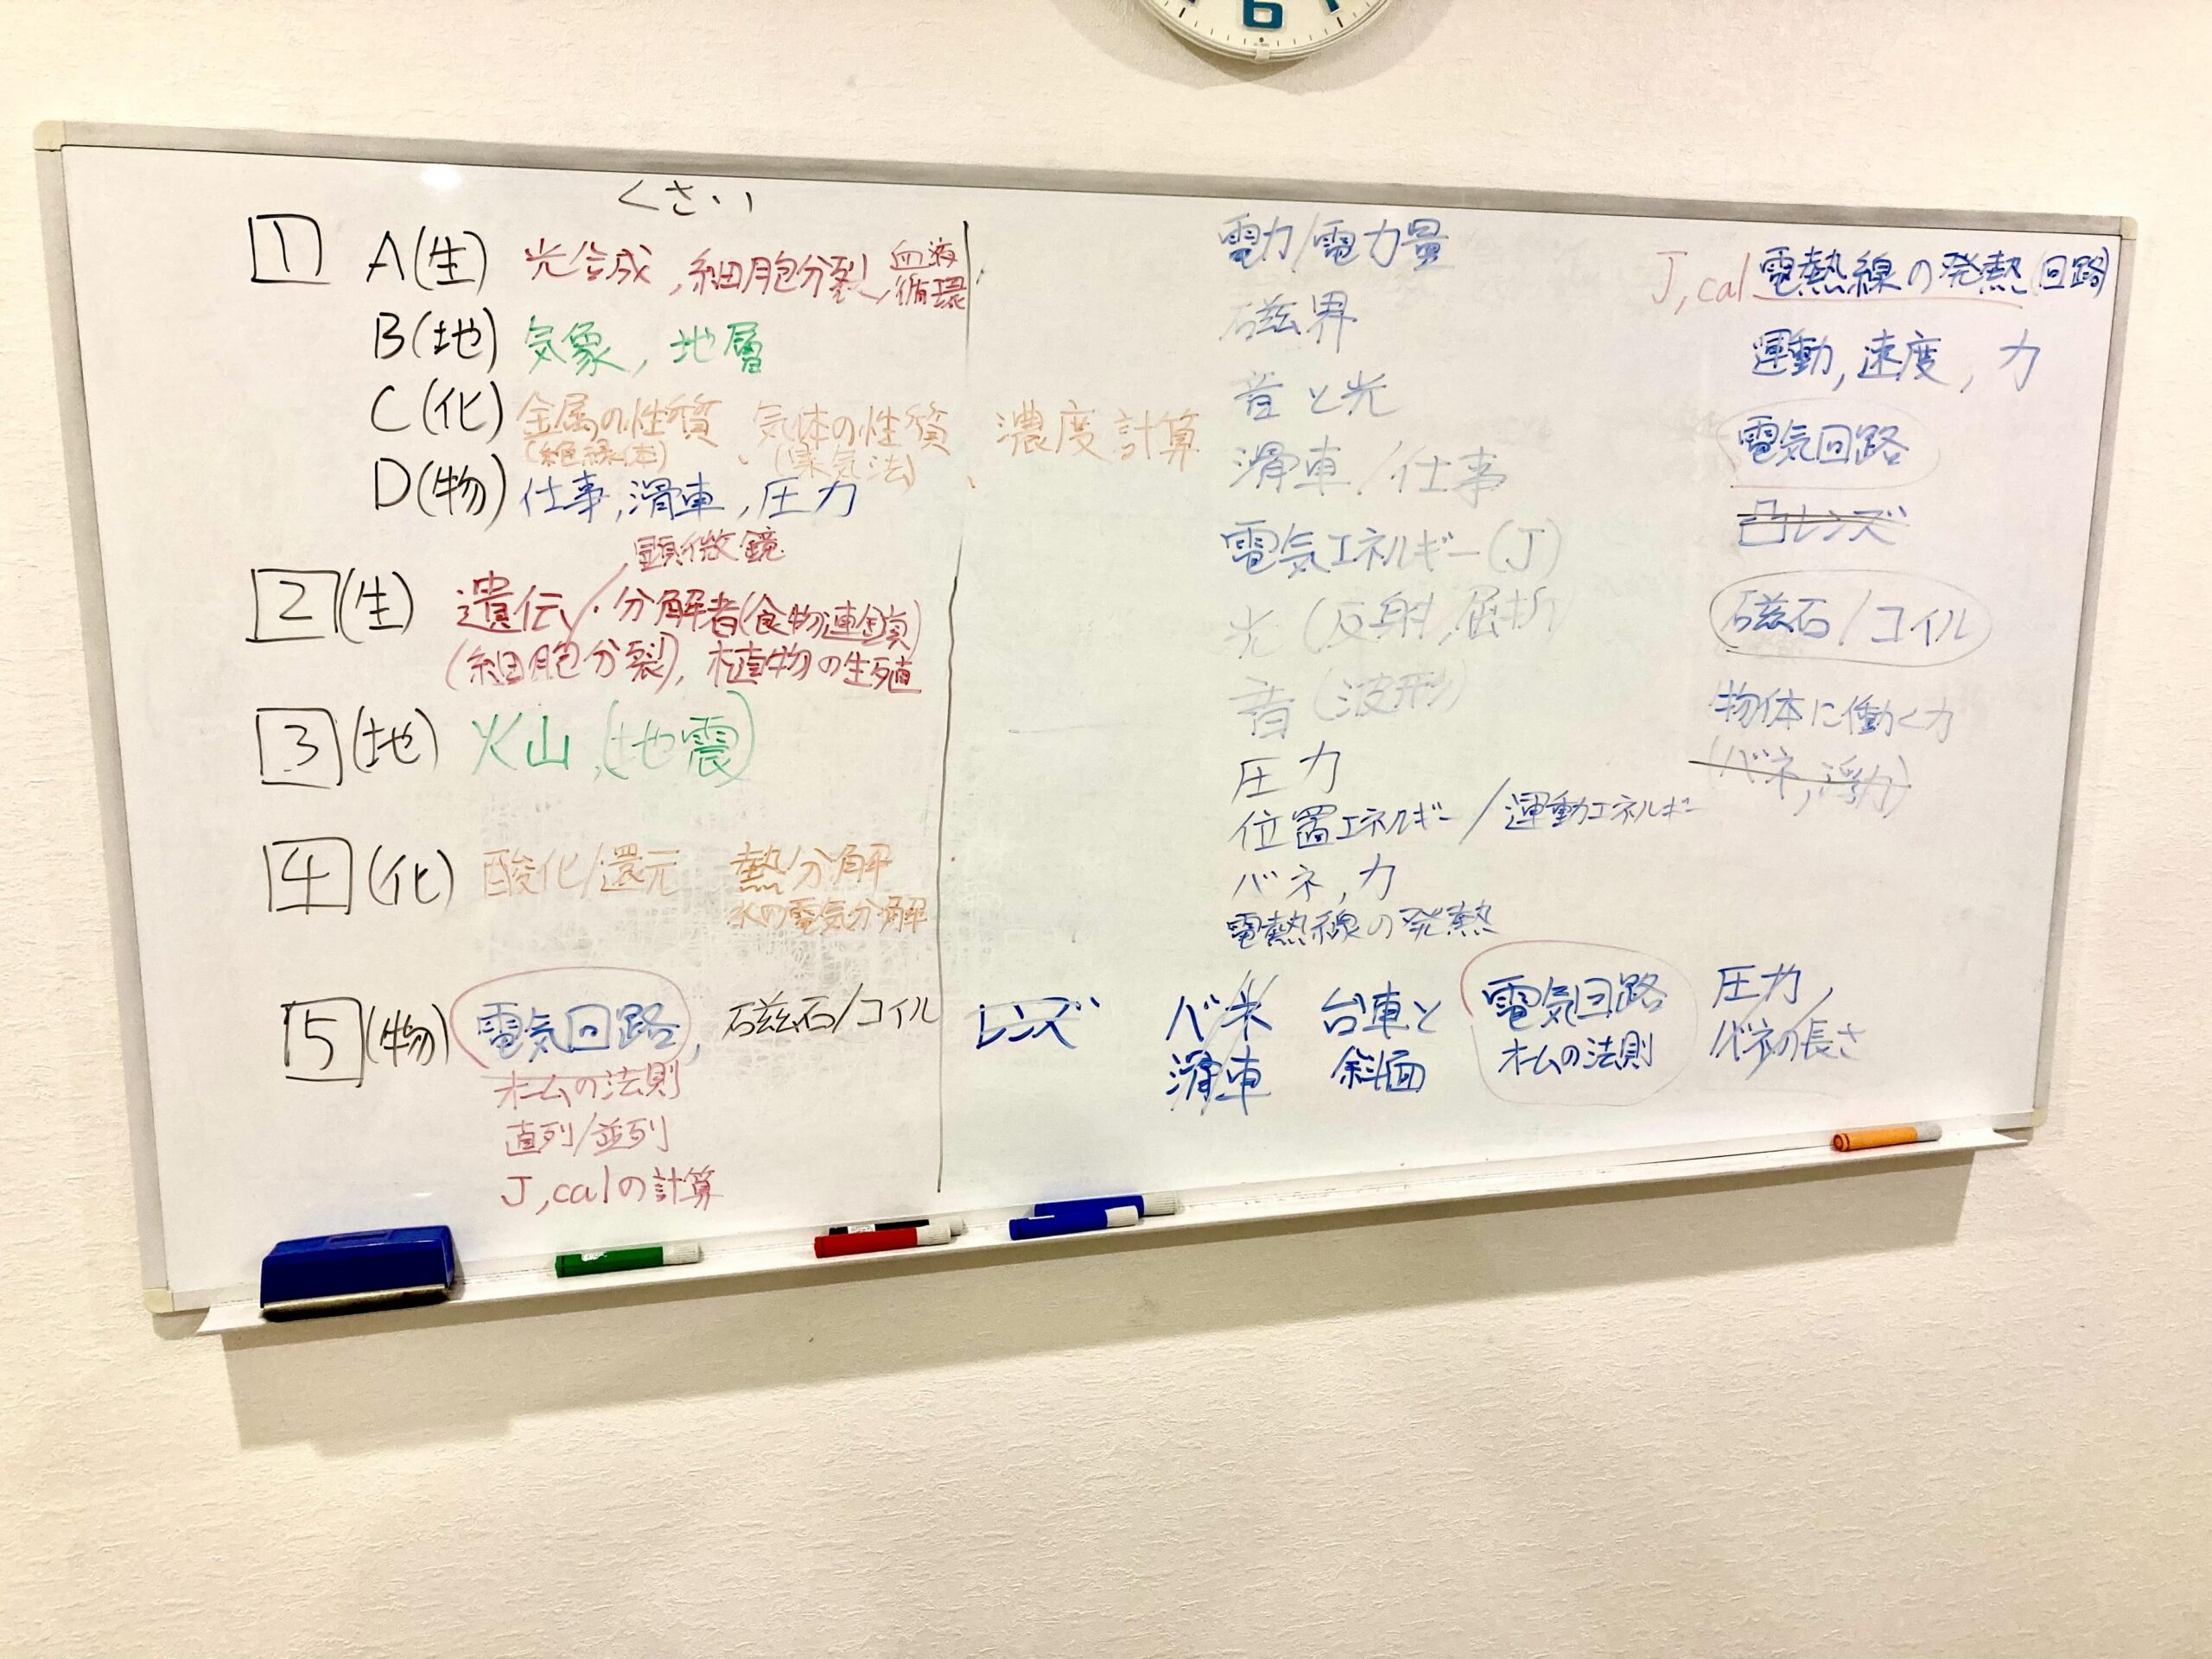 6
くさい
1 A(生) 光合成, 細胞分裂, 血液循環
B(地) 気象, 地層
C(化) 金属の性質(絶縁体)、気体の性質、濃度計算
D(物) 仕事, 滑車, 圧力
顕微鏡
2 (生) 遺伝/・分解者(食物連鎖)
(細胞分裂), 植物の生殖
3 (地) 火山, (地震)
4 (化) 酸化/還元 熱分解
水の電気分解
5 (物) 電気回路, 磁石/コイル
オームの法則
直列/並列
J, calの計算
電力/電力量
磁界
音と光
滑車/仕事
電気エネルギー(J)
光(反射, 屈折)
音(波形)
圧力
位置エネルギー/運動エネルギー
バネ, 力
電熱線の発熱
J, cal 電熱線の発熱(回路)
運動, 速度, 力
電気回路
凸レンズ
磁石/コイル
物体に働く力
(バネ, 浮力)
レンズ
バネ
滑車
台車と
斜面
電気回路
オームの法則
圧力,
バネの長さ